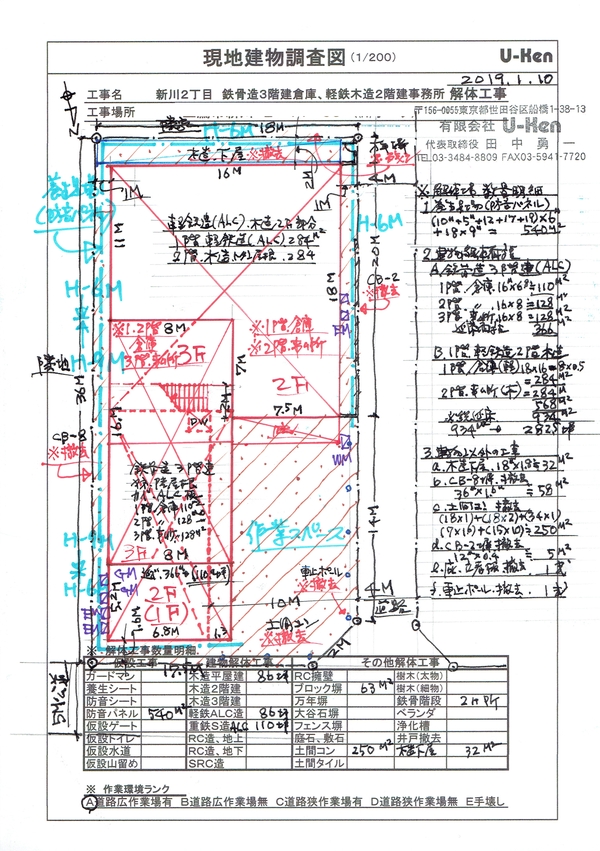 現地建物調査図(1/200) U-Ken
2019.1.10
工事名 新川2丁目 鉄骨造3階建倉庫、軽鉄木造2階建事務所 解体工事
工事場所
〒156-0055東京都世田谷区船橋1-38-13
有限会社 U-Ken
代表取締役 田中勇一
TEL03-3484-8809 FAX03-5941-7720
隣地
H-6M
18M
木造下屋 ※撤去
16M
2M
1M
1M
4M
養生足場
(防音パネル)
H-6M
11M
軽鉄造(ALC).木造2F部分
1階 軽鉄造(ALC) 284
2階
284
18M
20M
CB-2
※撤去
H-9M
※1.2階
倉庫
3階.事ム所
8M
3F
※1階.倉庫
※2階.事ム所
2F
隣地
36M
7M
7.5M
16M
DW
CB-8
※撤去
作業スペース
14M
鉄骨造 3階建
ALC板
1階/倉庫110
2階 〃 128
3F
8M
H-9M
2F
(1F)
5.2M
1.6M
6.8M
1.3
10M
車止ポール
※撤去
土間コン
※撤去
4M
道路
2M
※解体工事 数量明細
1.養生足場(防音パネル)
+18×9 = 540M2
2.建物解体面積
A.鉄骨造3階建(ALC)
1階/倉庫 16×6.8≒110M2
2階 〃 16×8=128M2
3階 事ム所 16×8=128M2
延床面積 366
B.1階.軽鉄造2階木造
=284M2
2階.事ム所(木) =284M
568M2
934M2
934M2 → 282.5坪
3.建物以外の工事
a.木造下屋.18×1.8≒32M2
b.CB-8塀.撤去
36×1.6 = 58M2
c.土間コン 撤去
(18×1)+(18×2)+(34×1)
(7×16)+(15×10)≒250M2
d.CB-2塀撤去
12×0.4 = 5M2
撤去 1式
f.車止ポール.撤去 1式
※ 解体工事数量明細
仮設工事 建物解体工事 その他解体工事
ガードマン 木造平屋建 86坪 RC擁壁 樹木(太物)
養生シート 木造2階建 ブロック塀 63M2 樹木(細物)
防音シート 木造3階建 万年塀 鉄骨階段 2ヶ所
防音パネル 540M2 軽鉄ALC造 86坪 大谷石塀 ベランダ
仮設ゲート 重鉄S造ALC 110坪 フェンス塀 浄化槽
仮設トイレ RC造、地上 庭石、敷石 井戸撤去
仮設水道 RC造、地下 土間コン 250M2 木造下屋 32M2
仮設山留め SRC造 土間タイル
※ 作業環境ランク
A道路広作業場有 B道路広作業場無 C道路狭作業場有 D道路狭作業場無 E手壊し